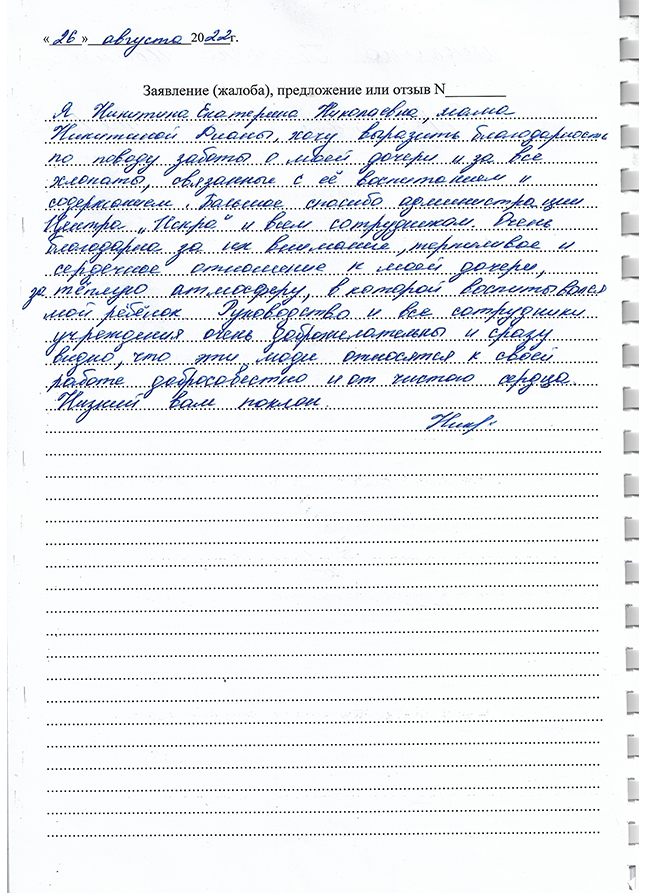 « 26 » августа 2022 г.
Заявление (жалоба), предложение или отзыв N________
Я Никитина Екатерина Николаевна, мама
Никитиной Дианы, хочу выразить благодарность
по поводу заботы о моей дочери и за все
хлопаты, связанные с её воспитанием и
содержанием. Большое спасибо администрации
Центра „Искра“ и всем сотрудникам. Очень
благодарна за их внимание, терпеливое и
сердечное отношение к моей дочери,
за тёплую атмосферу, в которой воспитывался
мой ребёнок. Руководство и все сотрудники
учреждения очень доброжелательны и сразу
видно, что эти люди относятся к своей
работе добросовестно и от чистого сердца.
Низкий вам поклон.